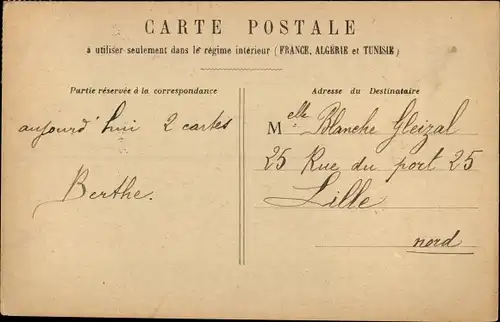 CARTE POSTALE
à utiliser seulement dans le régime intérieur (FRANCE, ALGÉRIE et TUNISIE)
Partie réservée à la correspondance
aujourd'hui 2 cartes
Berthe.
Adresse du Destinataire
Melle Blanche Gleizal
25 Rue du port 25
Lille
nord